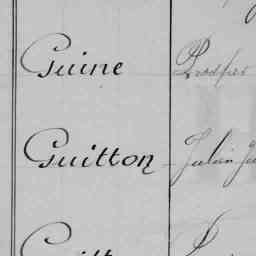 Guine Prosper
Guitton Julien